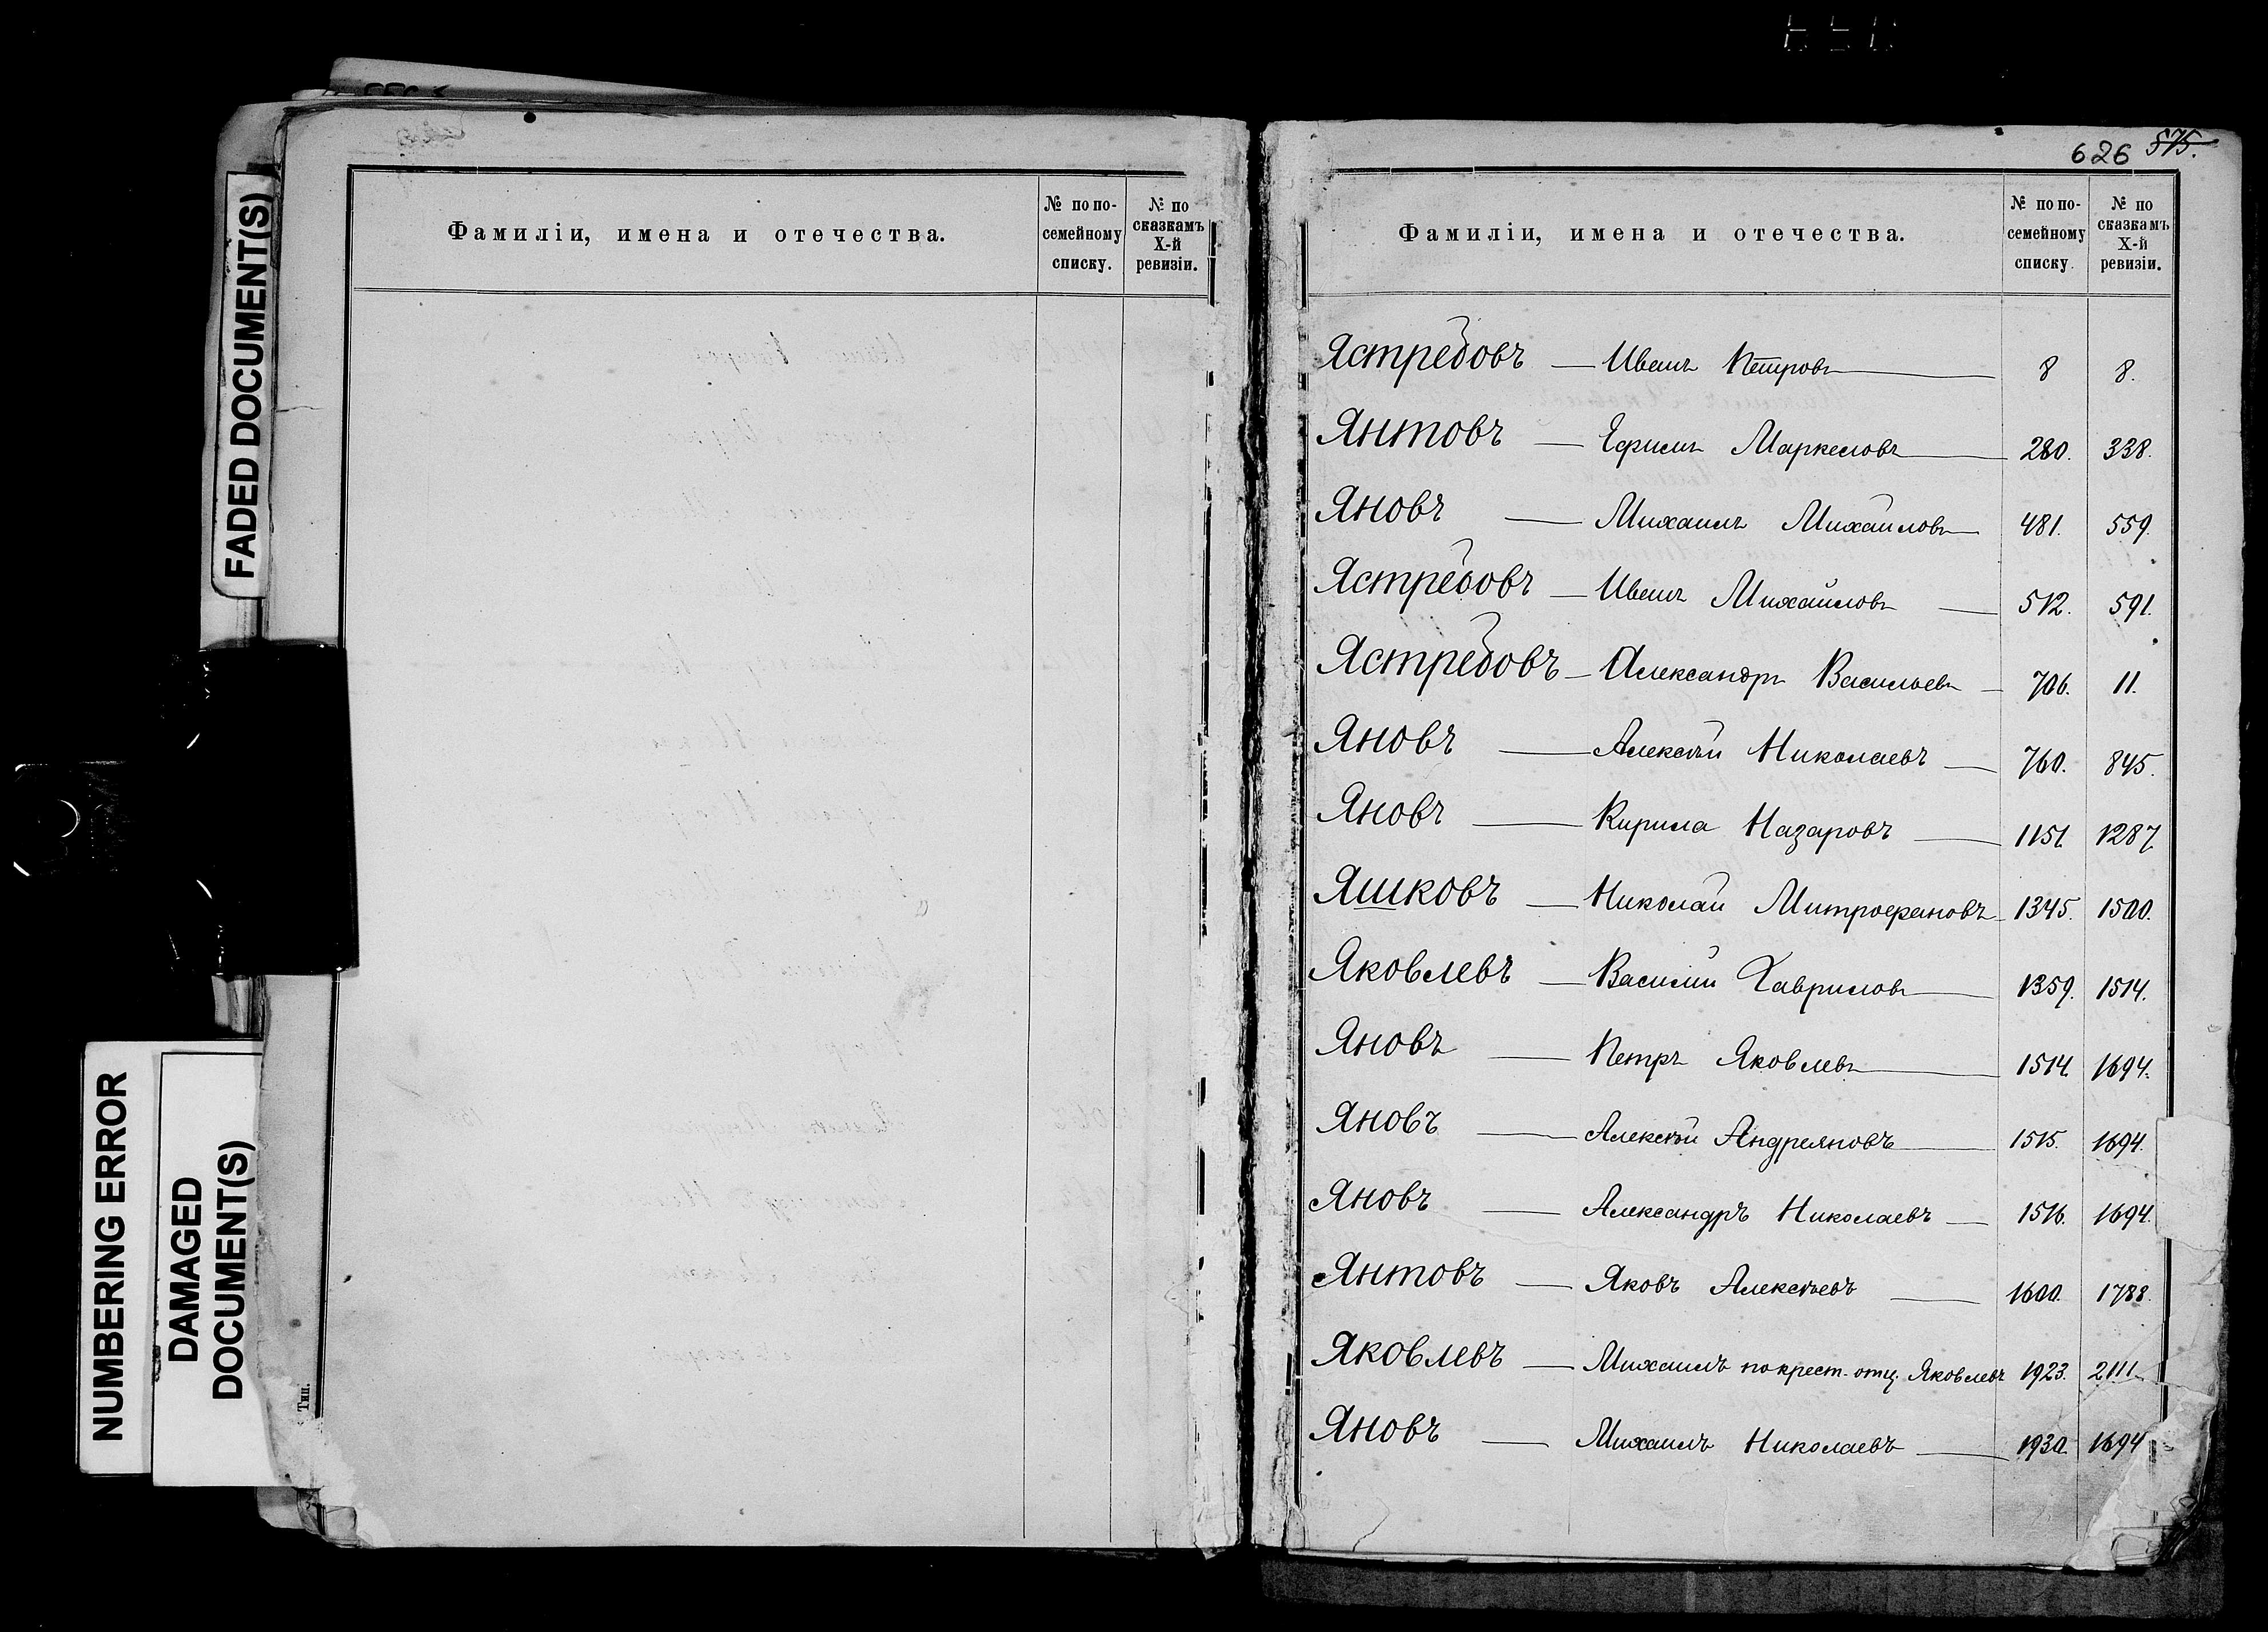 FADED DOCUMENT(S)
NUMBERING ERROR
DAMAGED
DOCUMENT(S)
Фамиліи, имена и отечества.
№ по по-
семейному
списку.
№ по
сказкамъ
X-й
ревизіи.
Тип.
626 575.
Фамиліи, имена и отечества.
№ по по-
семейному
списку.
№ по
сказкамъ
X-й
ревизіи.
Ястребовъ — Иванъ Петровъ 8 8.
Янтовъ — Ефимъ Маркеловъ 280. 338.
Яновъ — Михаилъ Михайловъ 481. 559.
Ястребовъ — Иванъ Михайловъ — 512. 591.
Ястребовъ — Александръ Васильевъ — 706. 11.
Яновъ — Алексѣй Николаевъ — 760. 845.
Яновъ — Кирила Назаровъ — 1151. 1287.
Яшковъ — Николай Митрофановъ 1345. 1500.
Яковлевъ — Василій Гавриловъ 1359. 1514.
Яновъ — Петръ Яковлевъ 1514. 1694.
Яновъ — Алексѣй Андреяновъ 1515. 1694.
Яновъ — Александръ Николаевъ — 1516. 1694.
Янтовъ — Яковъ Алексѣевъ — 1600. 1788.
Яковлевъ — Михаилъ по крест. отц. Яковлевъ 1923. 2111.
Яновъ — Михаилъ Николаевъ — 1930. 1694